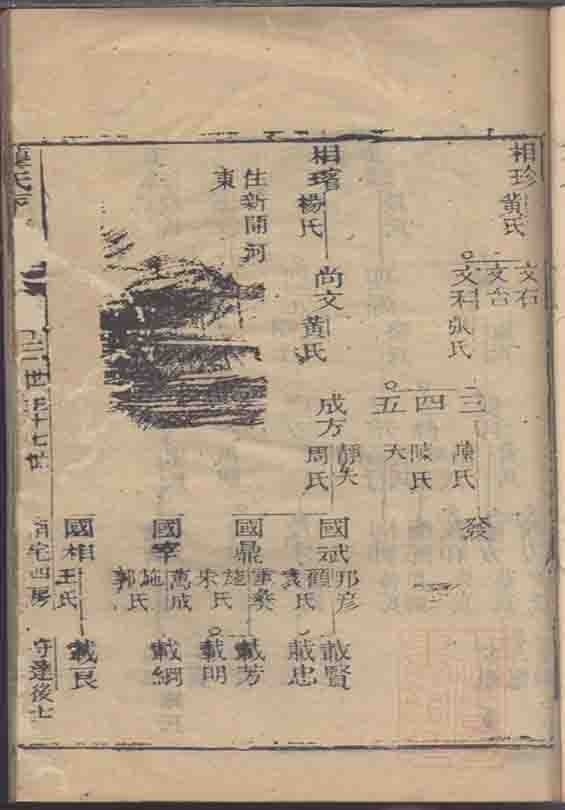 相珍 黃氏
文石
文台
文科 張氏
三 陳氏
四 陳氏
五 夭
發
相瑃 楊氏
住新開河
東
尚文 黃氏
成方 靜夫
周氏
國斌 邦彥
顧
袁氏
國鼎
朱氏
國宰
施氏
郭
國相 王氏
載賢
載忠
載芳
載明
載綱
載民
氏
世
十七世
宅四房
守達後士